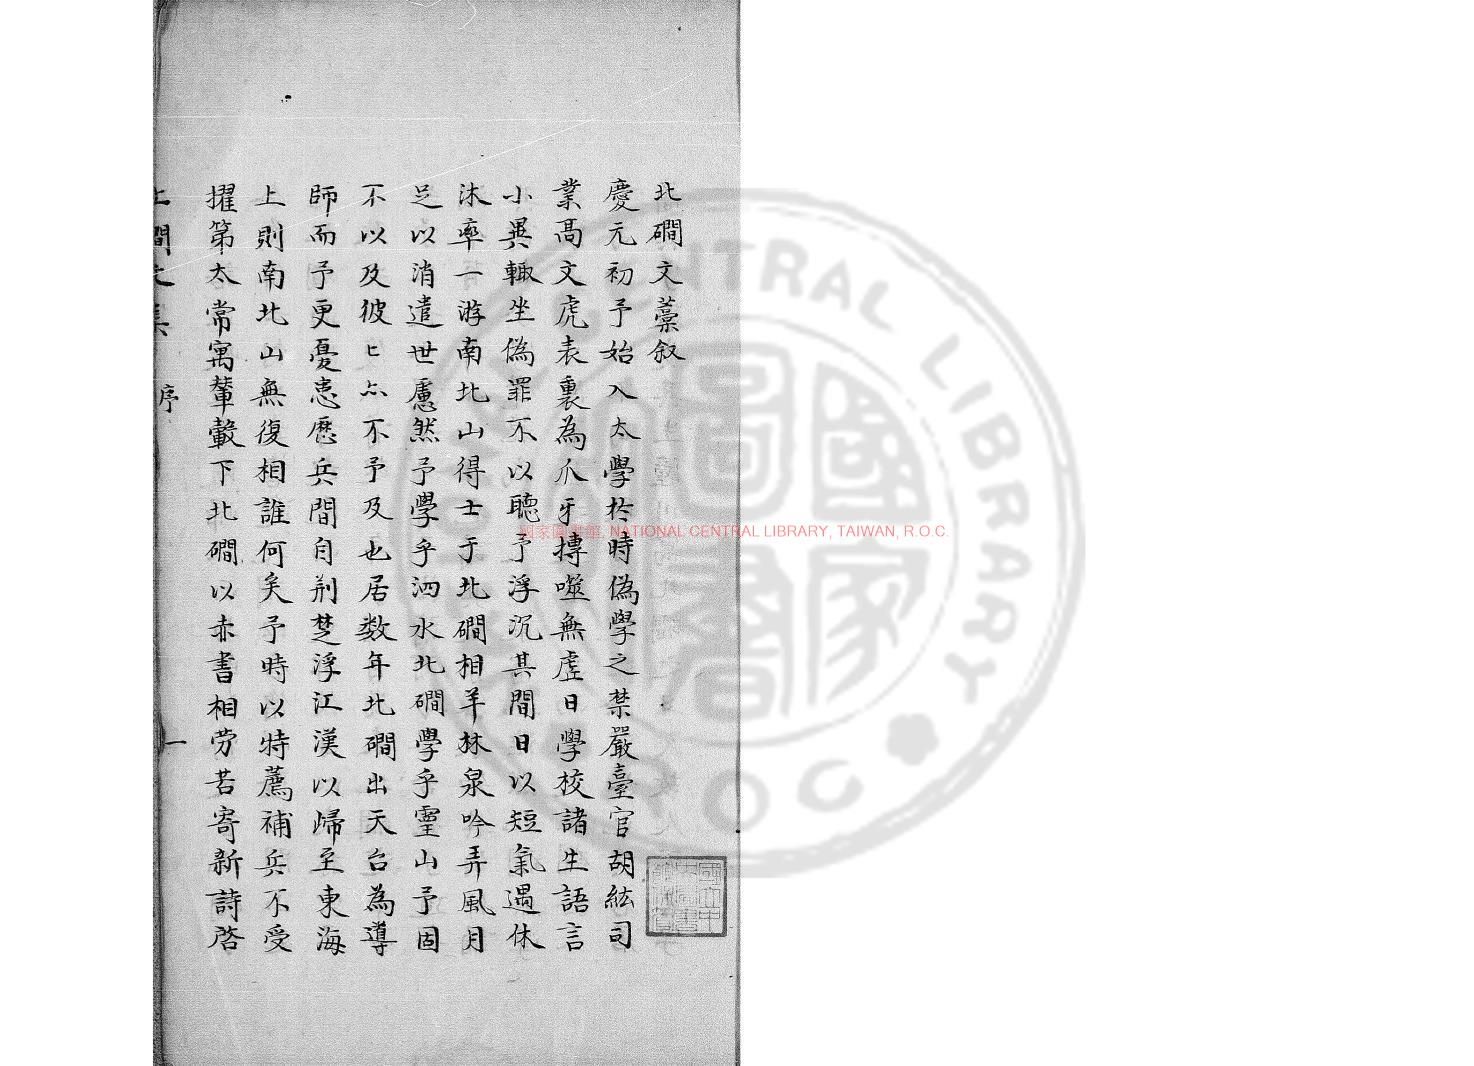 北磵文藁叙
慶元初予始入太學於時偽學之禁嚴臺官胡紘司
業髙文虎表裏為爪牙摶噬無虛日學校諸生語言
小異輙坐偽罪不以聽予浮沉其間日以短氣遇休
沐率一游南北山得士于北磵相羊林泉吟弄風月
足以消遣世慮然予學乎泗水北磵學乎霊山予固
不以及彼匕亦不予及也居数年北磵出天台為導
師而予更憂患歷兵間自荆楚浮江漢以歸至東海
上則南北山無復相誰何矣予時以特薦補兵不受
擢第太常寓輦轂下北磵以赤書相劳若寄新詩啓
北磵文集 序 一
國立中央圖書館收藏
國家圖書館, NATIONAL CENTRAL LIBRARY, TAIWAN, R.O.C.